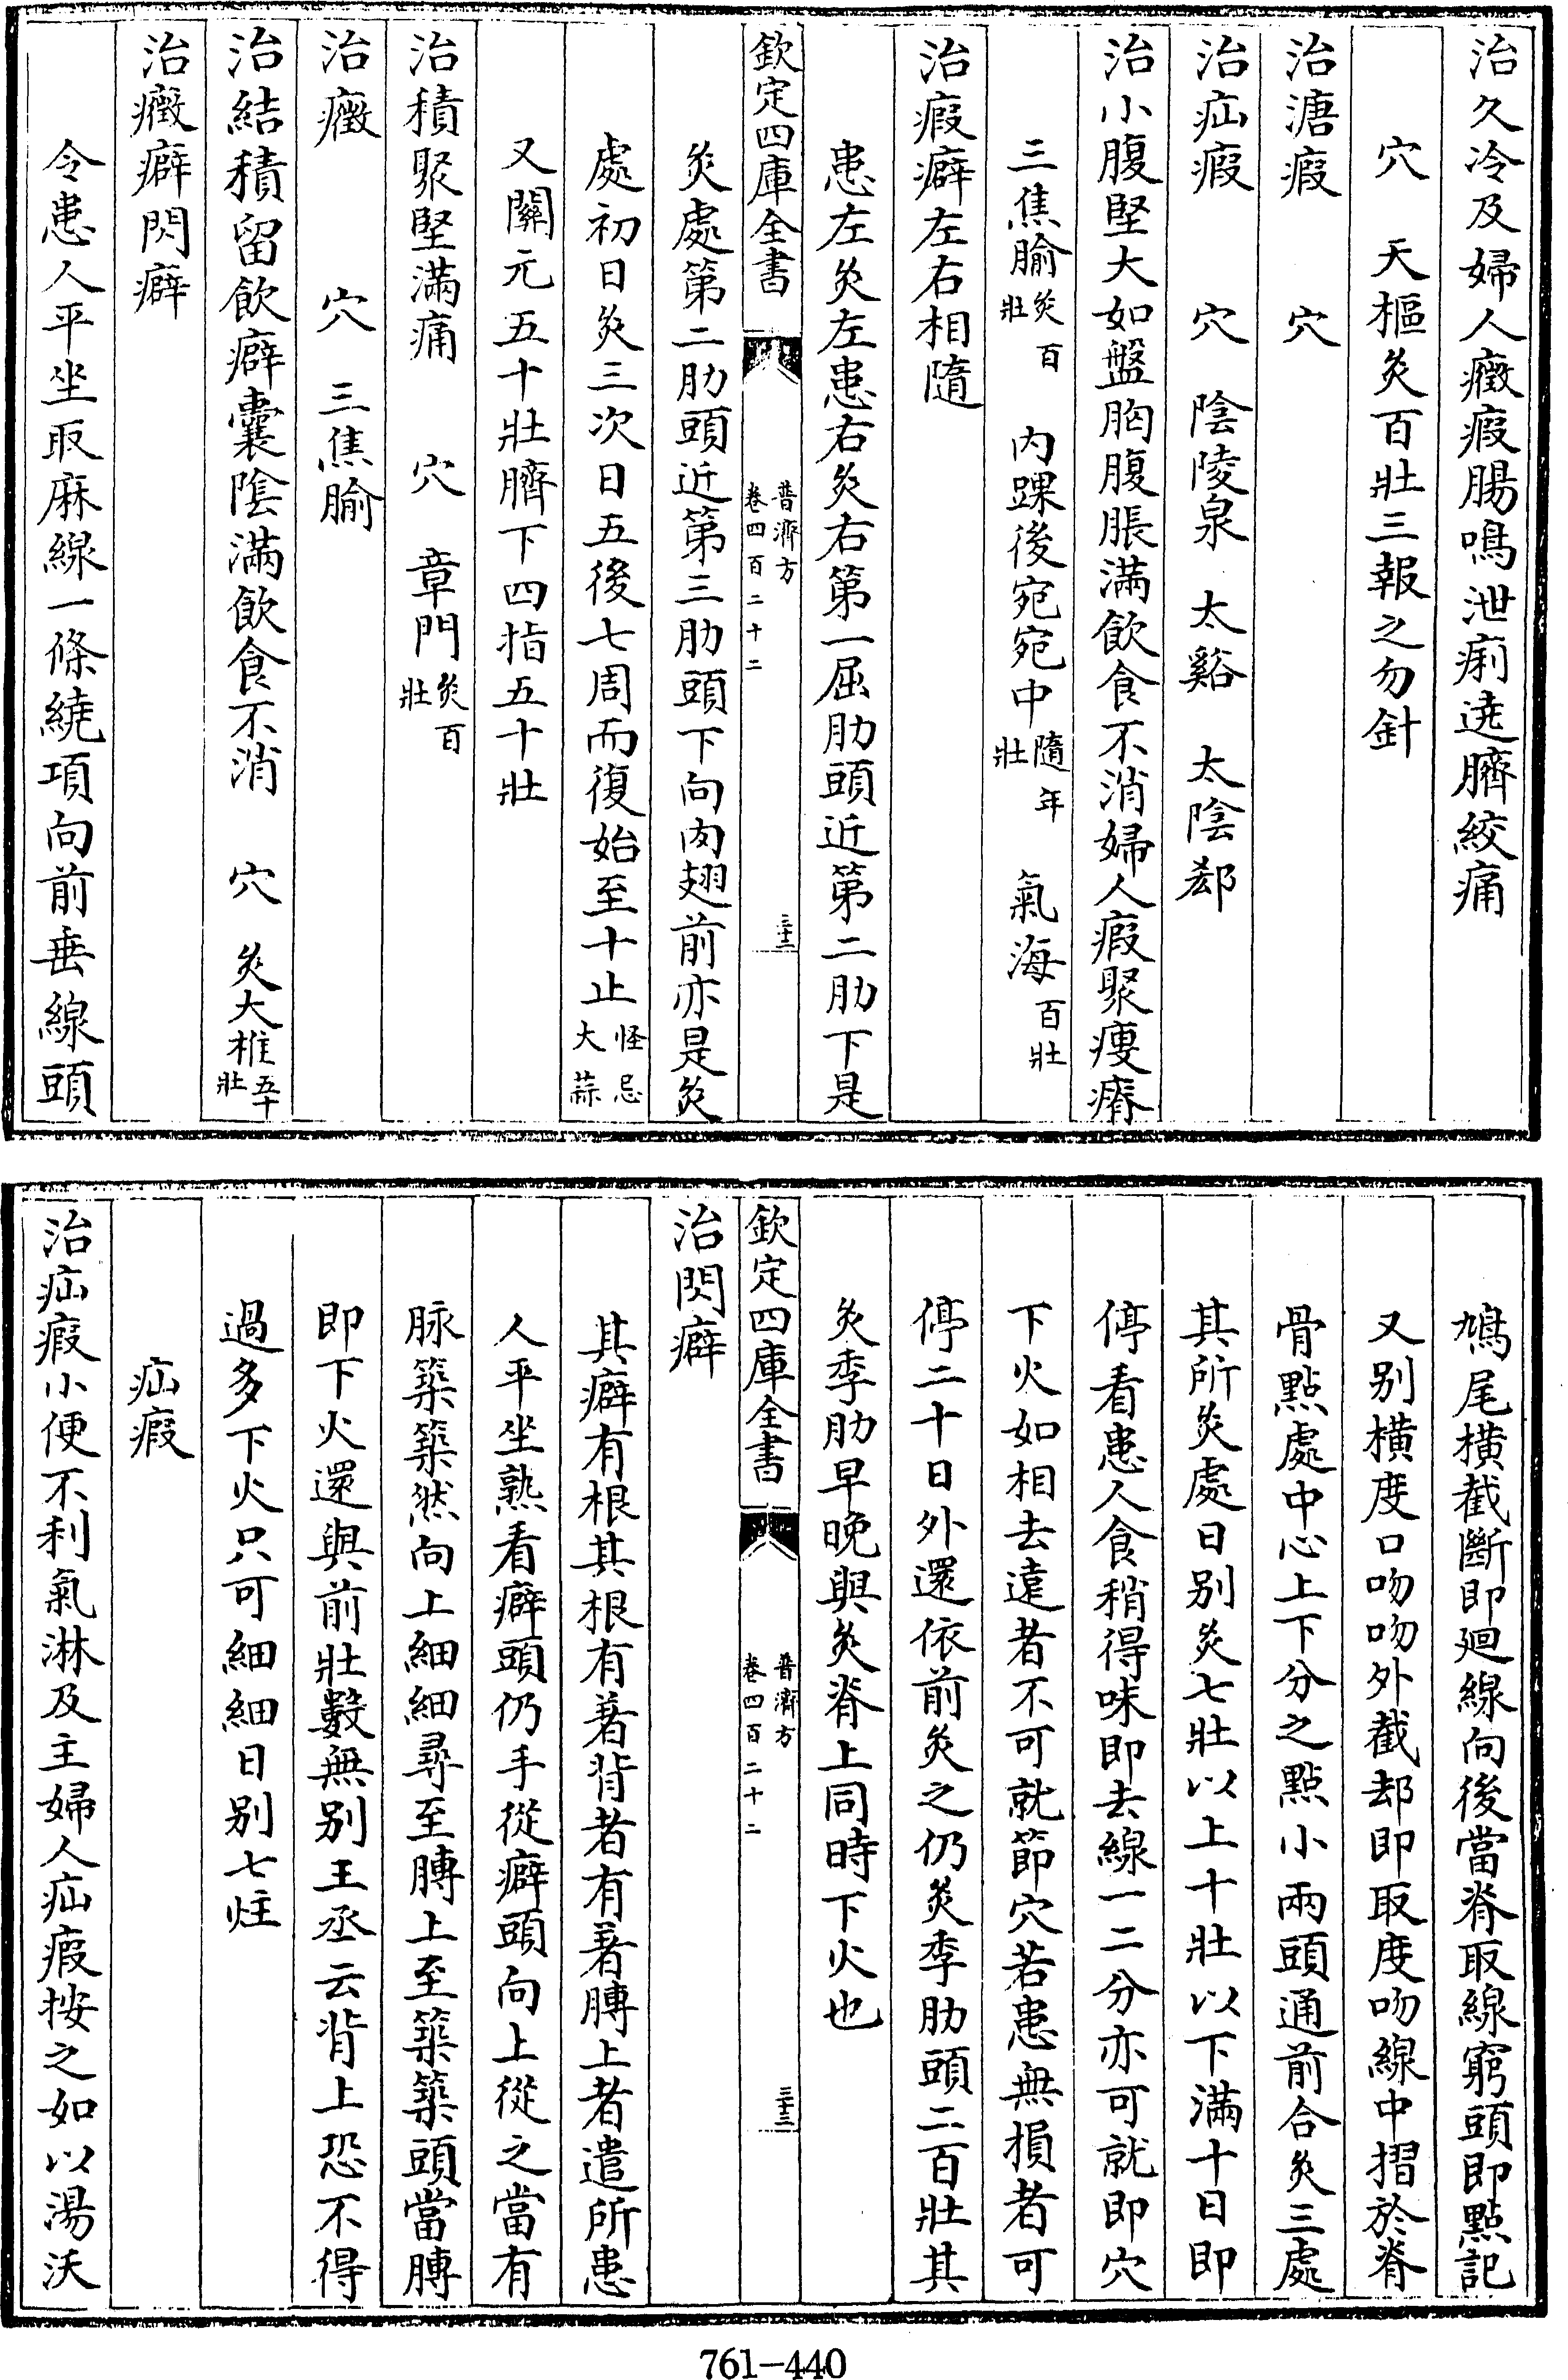 治久冷及婦人癥瘕腸鳴泄痢遶臍絞痛
穴　天樞灸百壯三報之勿針
治溏瘕　　穴
治疝瘕　　穴　陰陵泉　太谿　太陰郄
治小腹堅大如盤胸腹脹滿飲食不消婦人瘕聚瘦瘠
三焦腧灸百壯　內踝後宛宛中隨年壯　氣海百壯
治瘕癖左右相隨
患左灸左患右灸右第一屈肋頭近第二肋下是
欽定四庫全書　普濟方　卷四百二十二　三十二
灸處第二肋頭近第三肋頭下向肉翅前亦是灸
處初日灸三次日五後七周而復始至十止怪忌大蒜
又關元五十壯臍下四指五十壯
治積聚堅滿痛　　穴　章門灸百壯
治癥　　穴　三焦腧
治結積留飲癖囊陰滿飲食不消　穴　灸大椎五十壯
治癥癖閃癖
令患人平坐取麻線一條繞項向前垂線頭
鳩尾橫截斷即廻線向後當脊取線窮頭即點記
又别橫度口吻吻外截却即取度吻線中摺於脊
骨點處中心上下分之點小兩頭通前合灸三處
其所灸處日别灸七壯以上十壯以下滿十日即
停看患人食稍得味即去線一二分亦可就即穴
下火如相去遠者不可就節穴若患無損者可
停二十日外還依前灸之仍灸季肋頭二百壯其
灸季肋早晚與灸脊上同時下火也
欽定四庫全書　普濟方　卷四百二十二　三十三
治閃癖
其癖有根其根有著背者有著膊上者遣所患
人平坐熟看癖頭仍手從癖頭向上從之當有
脉築築然向上細細尋至膊上至築築頭當膊
即下火還與前壯數無别王丞云背上恐不得
過多下火只可細細日别七炷
疝瘕
治疝瘕小便不利氣淋及主婦人疝瘕按之如以湯沃
761-440